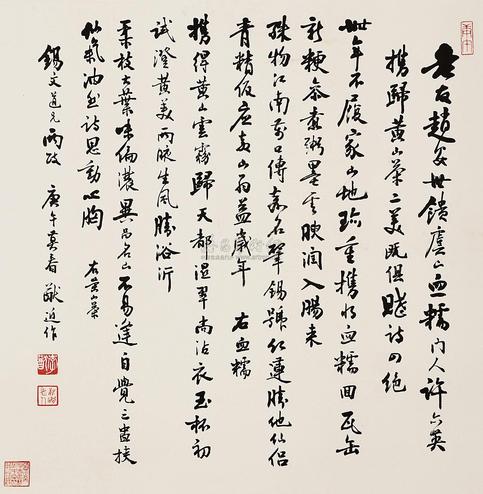 老友赵安世馈虞山血糯门人许六英
携归黄山茶二美既俱赋诗四绝
卅年不履家山地珍重携将血糯回瓦缶
新粳参素粥墨云映润入肠来
殊物江南万口传嘉名肇锡号红莲胜他仙侣
青精饭应与山翁益岁年 右血糯
携得黄山云雾归天都湿翠尚沾衣玉杯初
试澄黄美两腋生风胜浴沂
柔枝大叶味偏浓异品名山不易逢自觉三盅挟
仙气油然诗思动心胸 右黄山茶
锡文道兄两政 庚午莫春 猷返作